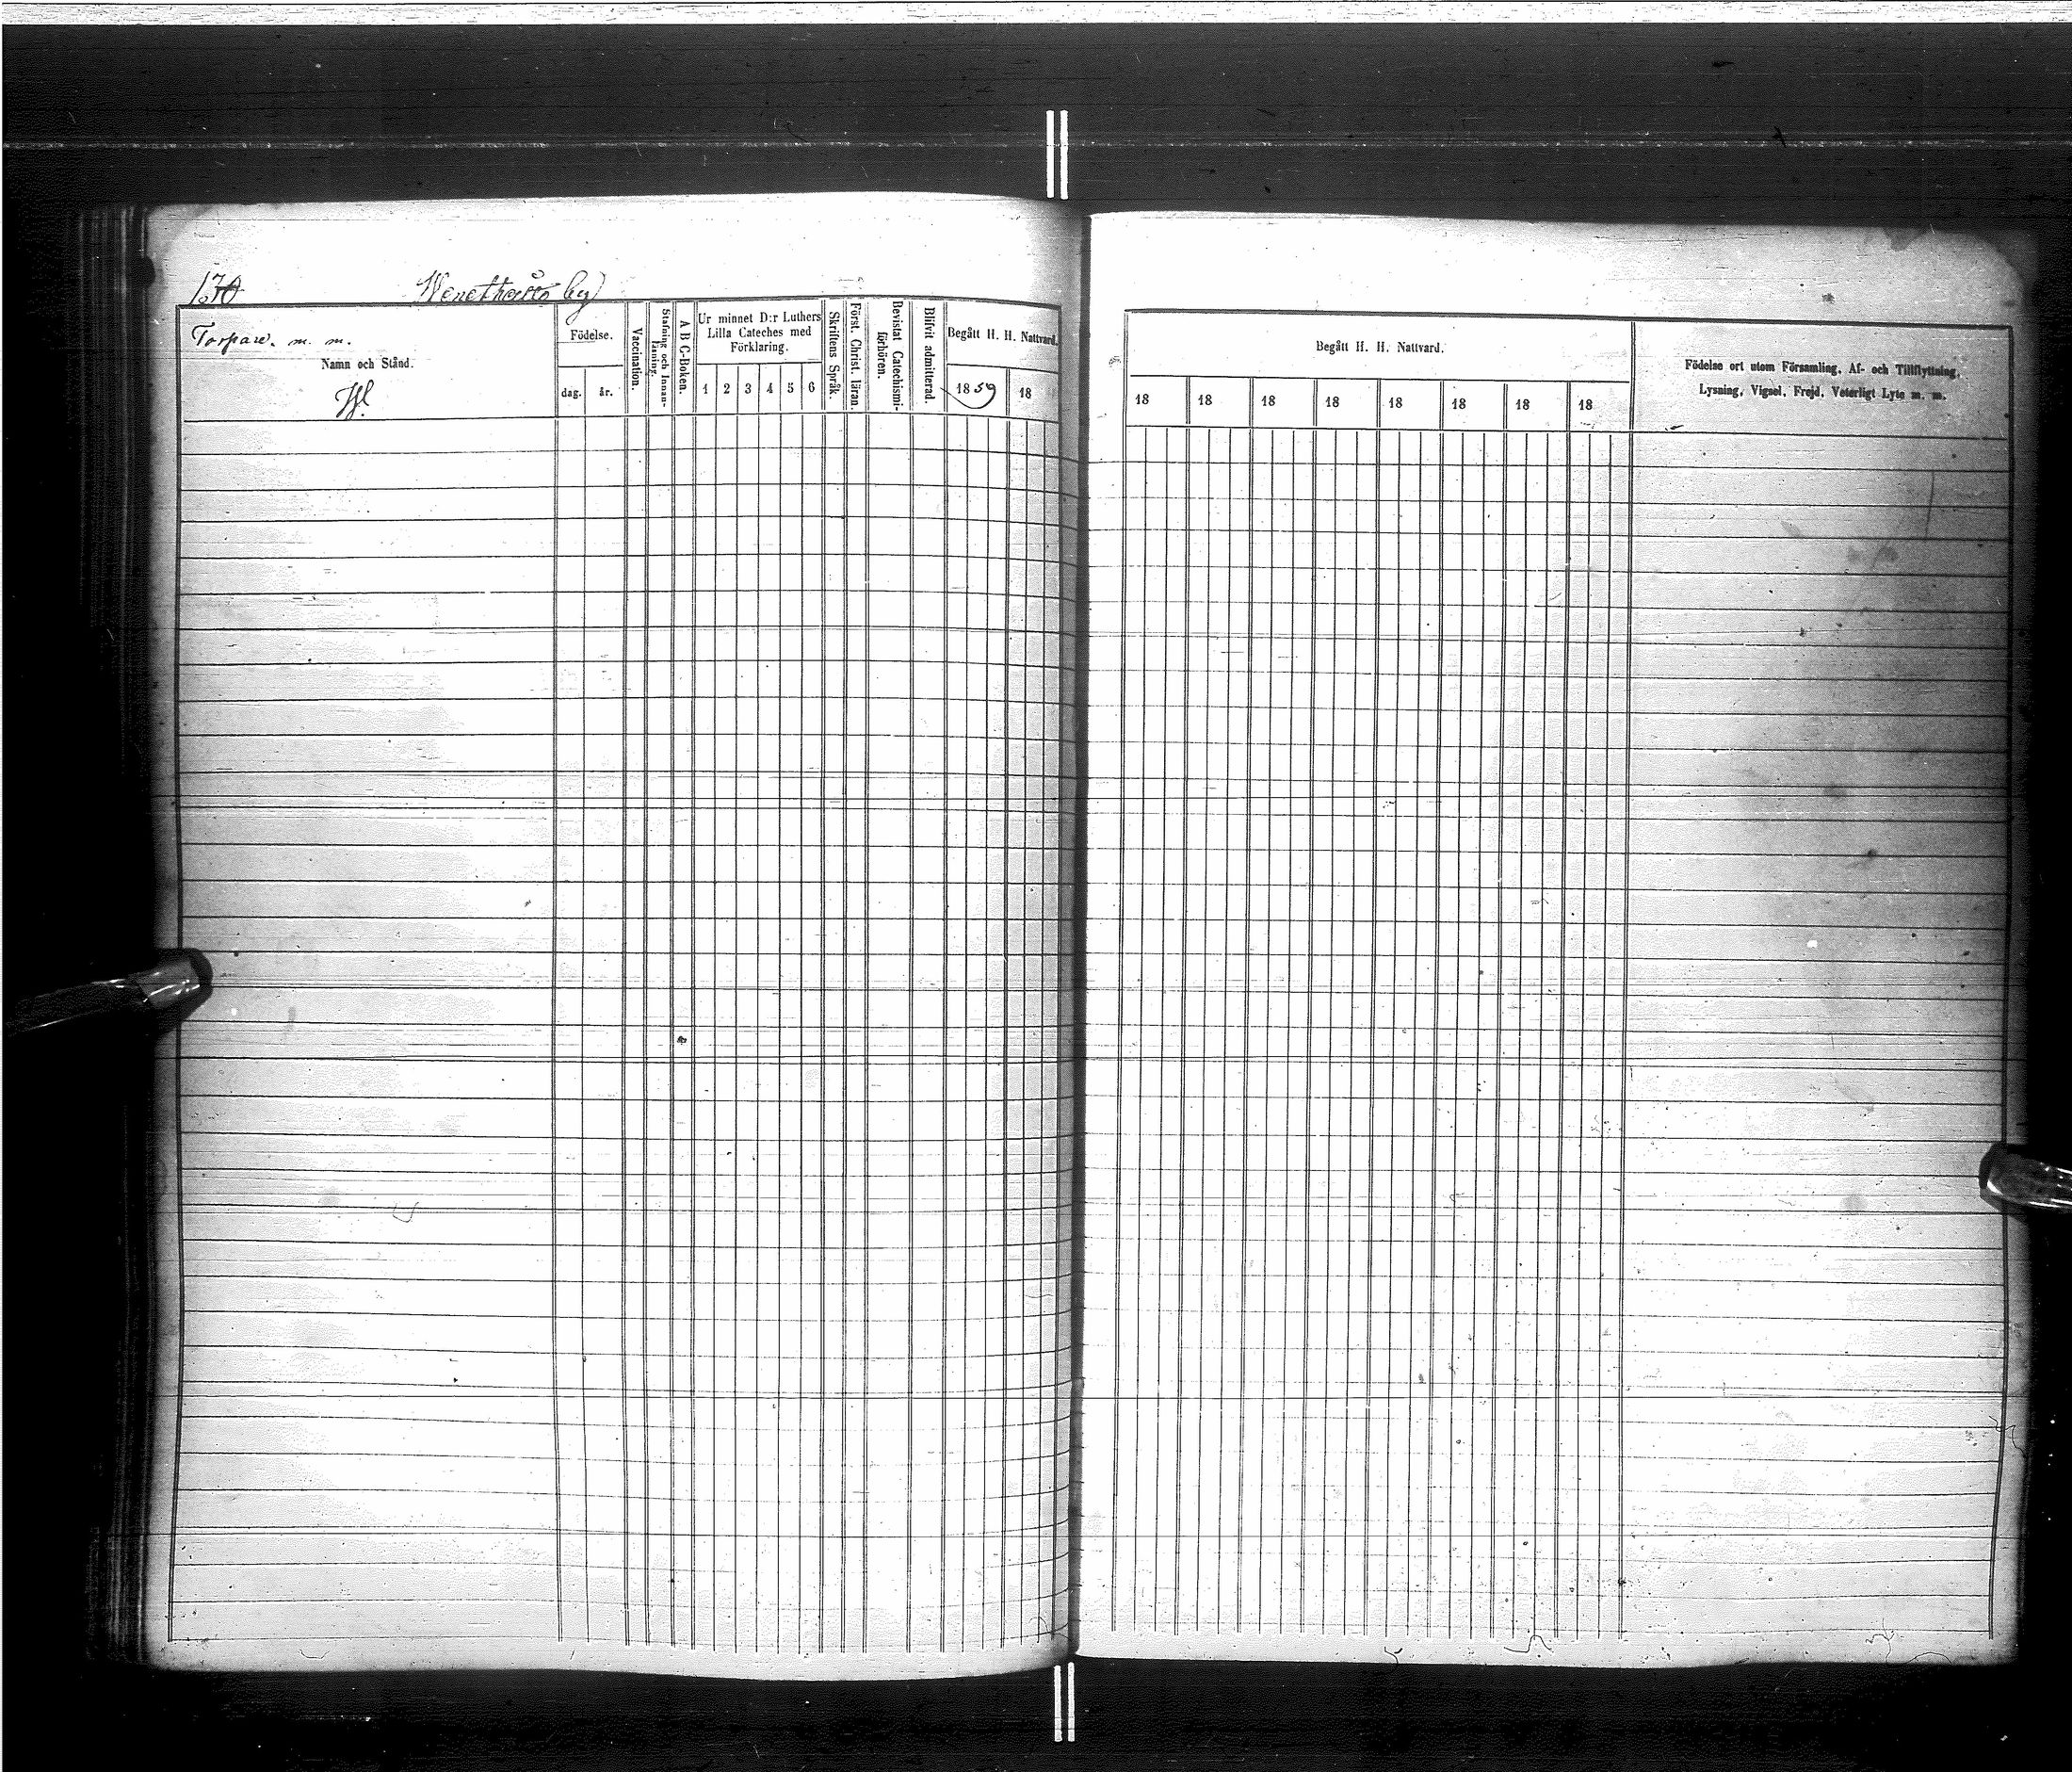 170
by
Torpare. m. m.
Namn och Stånd.
Födelse.
dag.
år.
Vaccination.
Stafning och Innan-
läsning.
A B C-Boken.
Ur minnet D:r Luthers
Lilla Cateches med
Förklaring.
1 2 3 4 5 6
Skriftens Språk.
Först. Christ. läran.
Bevistat Catechismi-
förhören.
Blifvit admitterad.
Begått H. H. Nattvard.
1859
18
Begått H. H. Nattvard.
18 18 18 18 18 18 18 18
Födelse ort utom Församling, Af- och Tillflyttning,
Lysning, Vigsel, Frejd, Veterligt Lyte m. m.